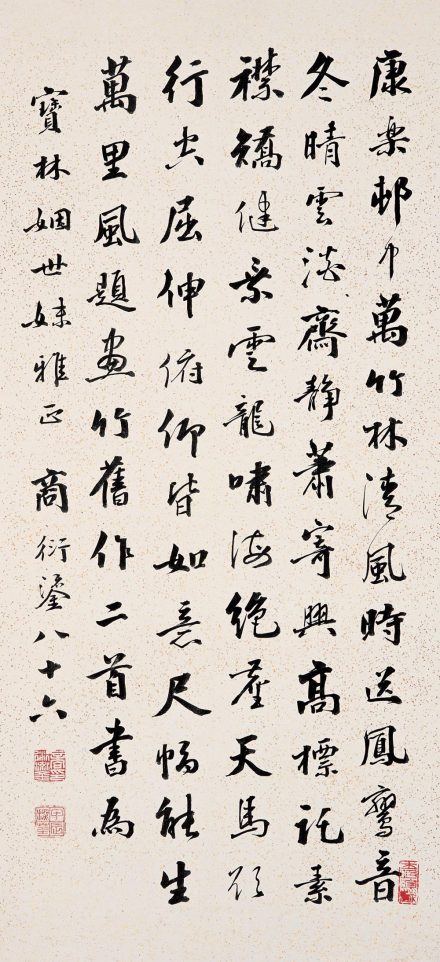 康樂邨中萬竹林清風時送鳳鸞音
冬晴雲淡齋靜蕭寄興高標託素
襟矯健乘雲龍嘯海絕塵天馬欲
行空屈伸俯仰皆如意尺幅能生
萬里風題畫竹舊作二首書為
寶林姻世妹雅正 商衍鎏八十六